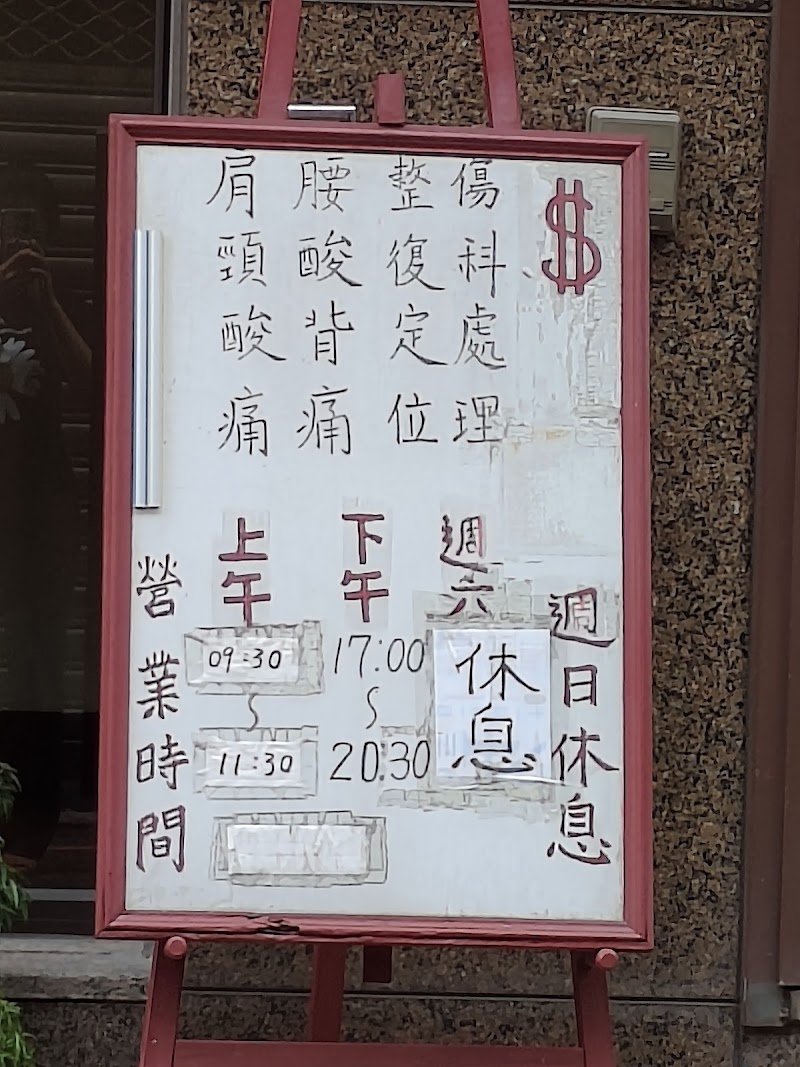 $
傷科處理
整復定位
腰酸背痛
肩頸酸痛
營業時間
上午
09:30
~
11:30
下午
17:00
~
20:30
週六
休息
週日休息